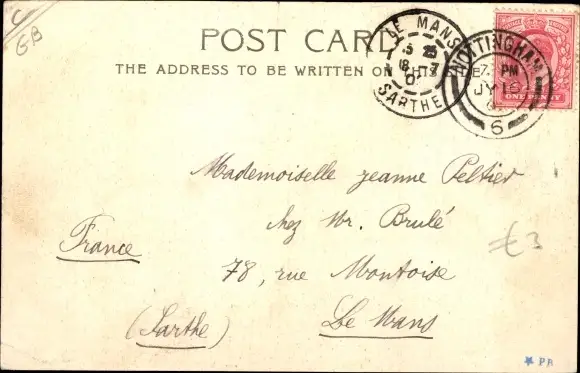 GB
POST CARD
THE ADDRESS TO BE WRITTEN ON THIS SIDE
LE MANS
SARTHE
NOTTINGHAM
PM
JY
6
ONE PENNY
Mademoiselle Jeanne Peltier
chez Mr. Brulé
France
78, rue Montoise
(Sarthe)
Le Mans
£3
* PB